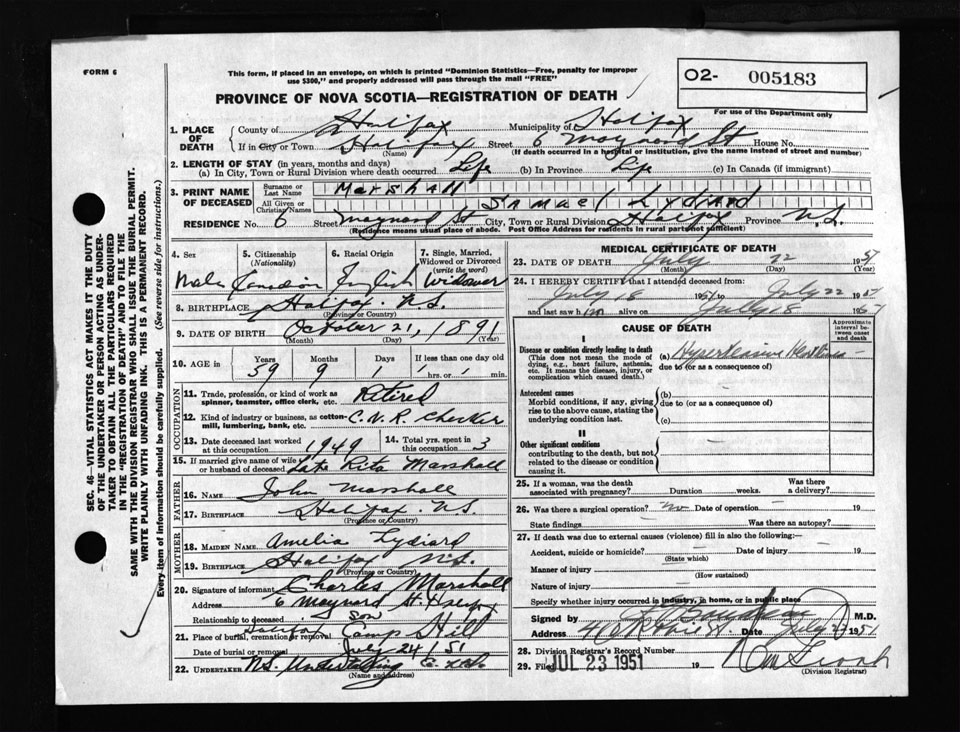 FORM 6
This form, if placed in an envelope, on which is printed "Dominion Statistics—Free, penalty for improper
use $300," and properly addressed will pass through the mail "FREE"
O2- 005183
For use of the Department only
PROVINCE OF NOVA SCOTIA—REGISTRATION OF DEATH
SEC. 46—VITAL STATISTICS ACT MAKES IT THE DUTY
OF THE UNDERTAKER OR PERSON ACTING AS UNDER-
TAKER TO OBTAIN ALL THE PARTICULARS REQUIRED
IN THE "REGISTRATION OF DEATH" AND TO FILE THE
SAME WITH THE DIVISION REGISTRAR WHO SHALL ISSUE THE BURIAL PERMIT.
WRITE PLAINLY WITH UNFADING INK. THIS IS A PERMANENT RECORD.
Every item of information should be carefully supplied. (See reverse side for instructions.)
1. PLACE OF DEATH County of Halifax Municipality of Halifax
If in City or Town Halifax Street 6 Maynard St House No.
(Name) (If death occurred in a hospital or institution, give the name instead of street and number)
2. LENGTH OF STAY (in years, months and days)
(a) In City, Town or Rural Division where death occurred Life (b) In Province Life (c) In Canada (if immigrant)
3. PRINT NAME OF DECEASED Surname or Last Name Marshall
All Given or Christian Names Samuel Lydiard
RESIDENCE No. 6 Street Maynard St City, Town or Rural Division Halifax Province N.S.
(Residence means usual place of abode. Post Office Address for residents in rural parts not sufficient)
4. Sex 5. Citizenship (Nationality) 6. Racial Origin 7. Single, Married, Widowed or Divorced (write the word)
Male Canadian English Widower
8. BIRTHPLACE Halifax N.S.
(Province or Country)
9. DATE OF BIRTH October 21, 1891
(Month) (Day) (Year)
10. AGE in Years Months Days If less than one day old
59 9 1 hrs. or min.
OCCUPATION
11. Trade, profession, or kind of work as spinner, teamster, office clerk, etc. Retired
12. Kind of industry or business, as cotton-mill, lumbering, bank, etc. C.N.R. Checker
13. Date deceased last worked at this occupation 1949 14. Total yrs. spent in this occupation 3
15. If married give name of wife or husband of deceased Late Rita Marshall
FATHER
16. NAME John Marshall
17. BIRTHPLACE Halifax N.S.
(Province or Country)
MOTHER
18. MAIDEN NAME Amelia Lydiard
19. BIRTHPLACE Halifax N.S.
(Province or Country)
20. Signature of informant Charles Marshall
Address 6 Maynard St. Halifax
Relationship to deceased son
21. Place of burial, cremation or removal Halifax Camp Hill
Date of burial or removal July 24/51
22. UNDERTAKER N.S. Undertaking
(Name and address)
MEDICAL CERTIFICATE OF DEATH
23. DATE OF DEATH July 22 1951
(Month) (Day) (Year)
24. I HEREBY CERTIFY that I attended deceased from:
July 18 1951 to July 22 1951
and last saw him alive on July 18 1951
CAUSE OF DEATH
Approximate interval between onset and death
I
Disease or condition directly leading to death (a) Hypertensive
(This does not mean the mode of dying, e.g., heart failure, asthenia, etc. It means the disease, injury, or complication which caused death.)
due to (or as a consequence of)
Antecedent causes (b)
Morbid conditions, if any, giving rise to the above cause, stating the underlying condition last.
due to (or as a consequence of)
(c)
II
Other significant conditions
contributing to the death, but not related to the disease or condition causing it.
25. If a woman, was the death associated with pregnancy? Duration weeks. Was there a delivery?
26. Was there a surgical operation? no Date of operation 19
State findings Was there an autopsy?
27. If death was due to external causes (violence) fill in also the following:
Accident, suicide or homicide? Date of injury 19
(State which)
Manner of injury
(How sustained)
Nature of injury
Specify whether injury occurred in industry, in home, or in public place
Signed by M.D.
Address Date July 1951
28. Division Registrar's Record Number
29. Filed JUL 23 1951 19
(Division Registrar)